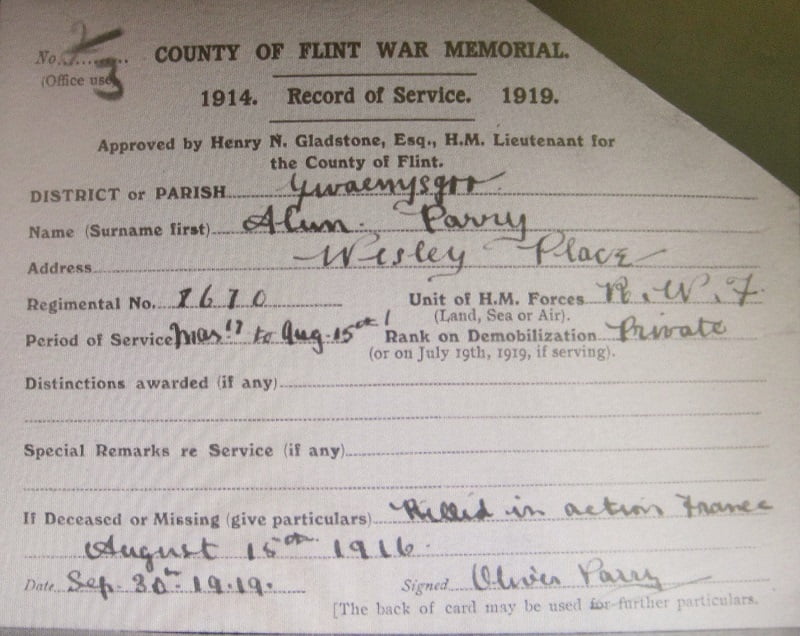 No. 2
(Office use) 3
COUNTY OF FLINT WAR MEMORIAL.
1914. Record of Service. 1919.
Approved by Henry N. Gladstone, Esq., H.M. Lieutenant for
the County of Flint.
DISTRICT or PARISH Gwaenysgor
Name (Surname first) Alun Parry
Address Wesley Place
Regimental No. 7670 Unit of H.M. Forces R.W.F.
(Land, Sea or Air).
Period of Service to Aug. 15th Rank on Demobilization Private
(or on July 19th, 1919, if serving).
Distinctions awarded (if any)
Special Remarks re Service (if any)
If Deceased or Missing (give particulars) Killed in action France
August 15th 1916.
Date Sep. 30th 19.19. Signed Oliver Parry
[The back of card may be used for further particulars.